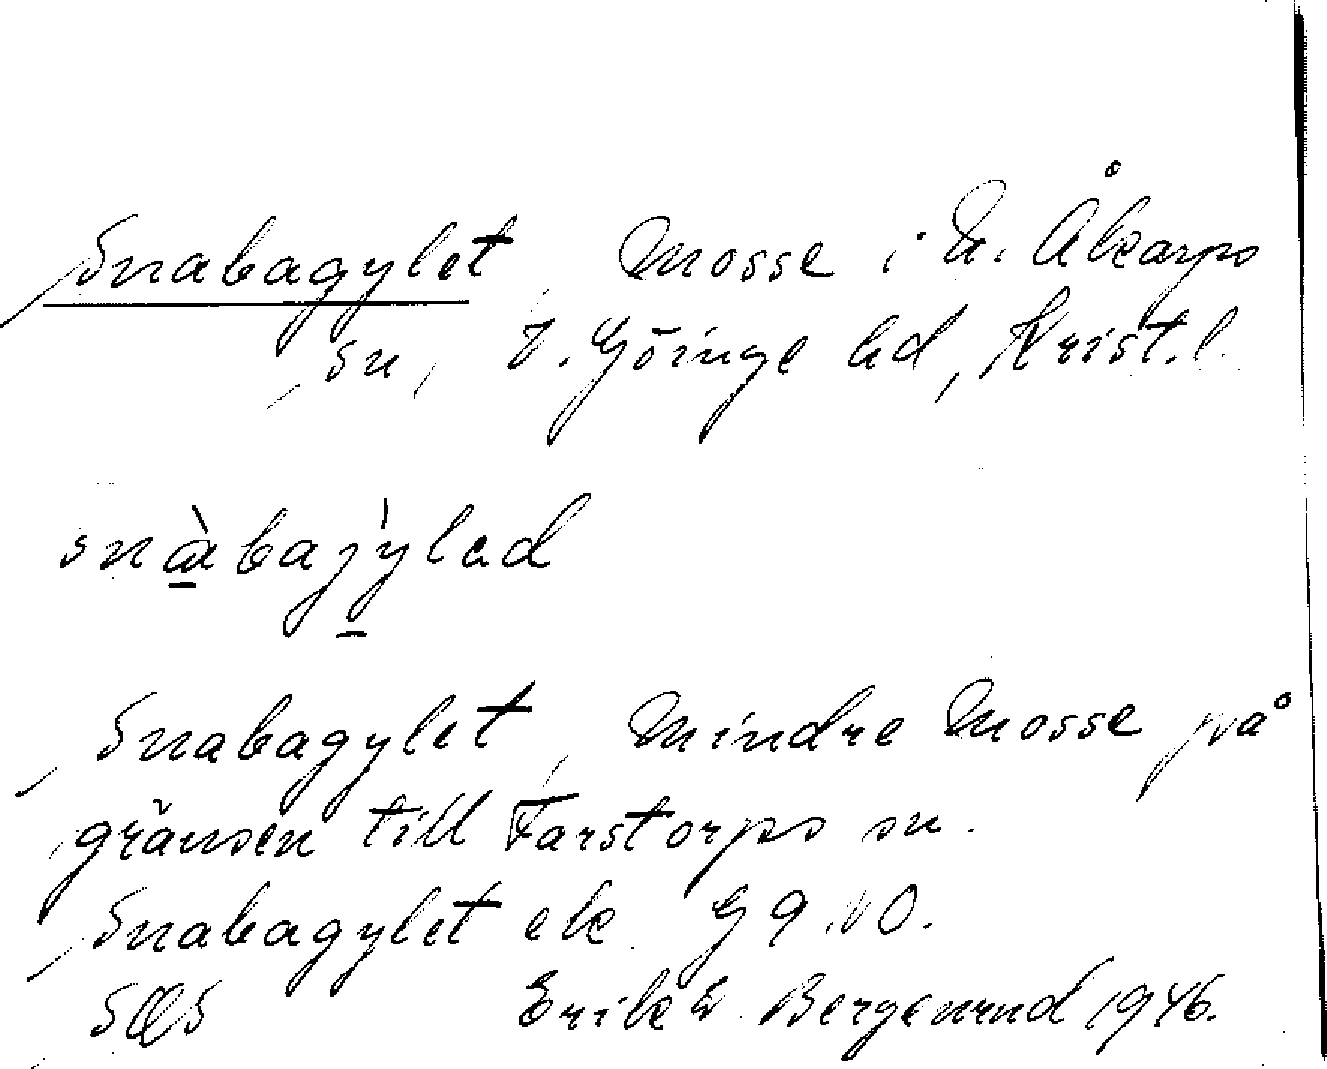 Snabagylet, Mosse i N. Åkarps
sn, V. Göinge hd, Krist. l.
snàbajỳlad
Snabagylet, Mindre Mosse på
gränsen till Farstorps sn.
Snabagylet ek. G 9 NO.
SOS Erik W. Bergenrud 1946.